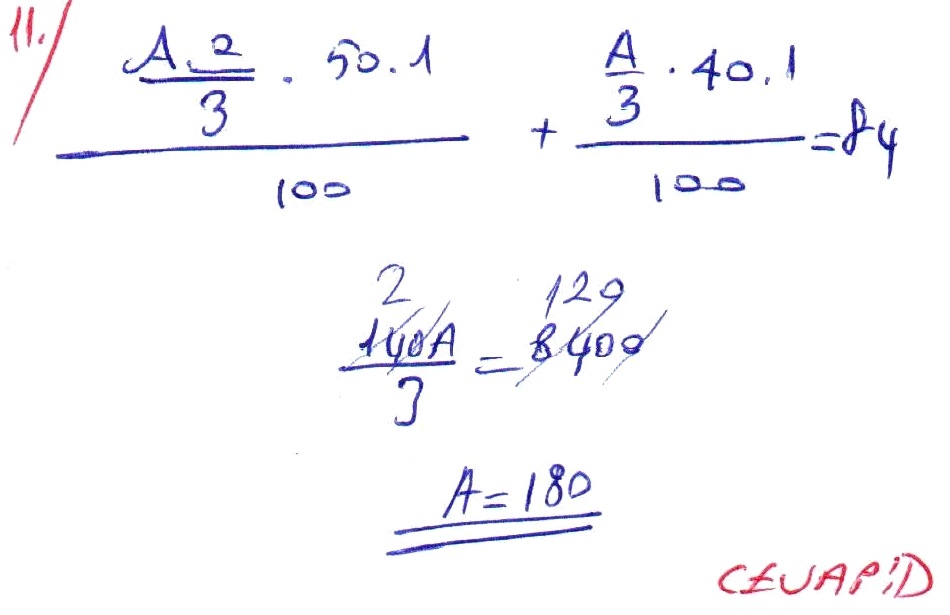 11.
A.2/3 . 50.1 / 100 + A/3 . 40.1 / 100 = 84
2 120
140A/3 = 8400
A = 180
CEVAP:D